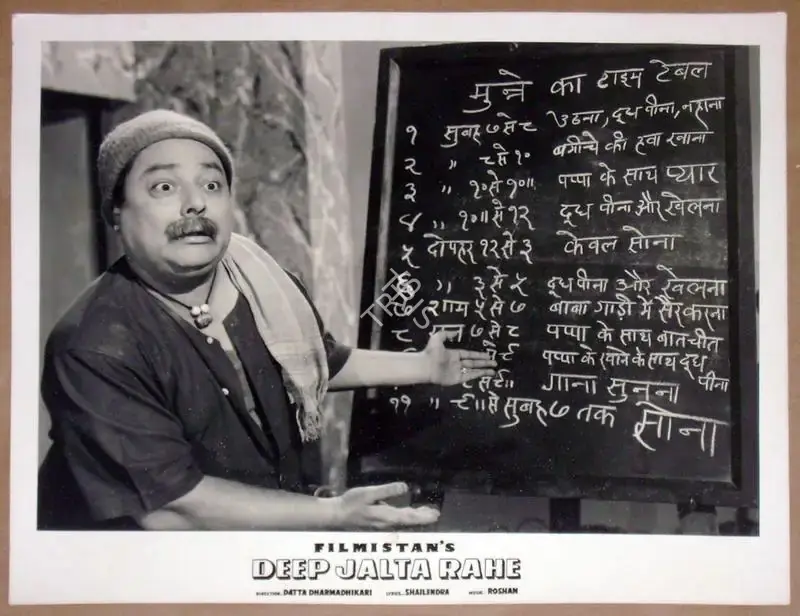 मुन्ने का टाइम टेबल
१ सुबह ७ से ८ उठना, दूध पीना, नहाना
२ " ८ से १० बगीचे की हवा खाना
३ " १० से १०॥ पप्पा के साथ प्यार
४ " १०॥ से १२ दूध पीना और खेलना
५ दोपहर १२ से ३ केवल सोना
६ " ३ से ५ दूध पीना और खेलना
७ शाम ५ से ७ बाबा गाड़ी में सैर करना
८ ७ से ८ पप्पा के साथ बातचीत
से ९ पप्पा के खाने के साथ दूध पीना
९ से ९॥ गाना सुनना
११ " ९॥ से सुबह ७ तक सोना
FILMISTAN'S
DEEP JALTA RAHE
DIRECTION. DATTA DHARMADHIKARI LYRICS. SHAILENDRA MUSIC. ROSHAN